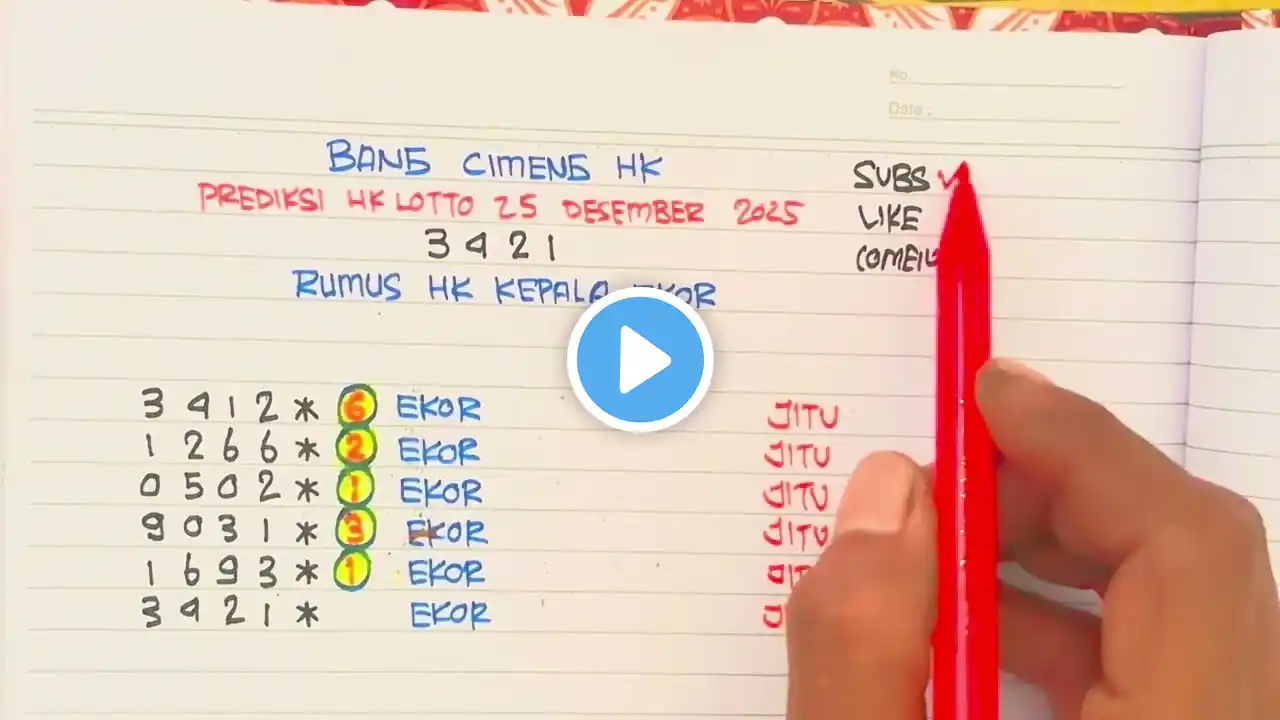 No.
Date.
BANG CIMENG HK
PREDIKSI HK LOTTO 25 DESEMBER 2025
3 4 2 1
RUMUS HK KEPALA EKOR
SUBS ✓
LIKE
3 4 1 2 * 6 EKOR JITU
1 2 6 6 * 2 EKOR JITU
0 5 0 2 * 1 EKOR JITU
9 0 3 1 * 3 EKOR JITU
1 6 9 3 * 1 EKOR
3 4 2 1 * EKOR